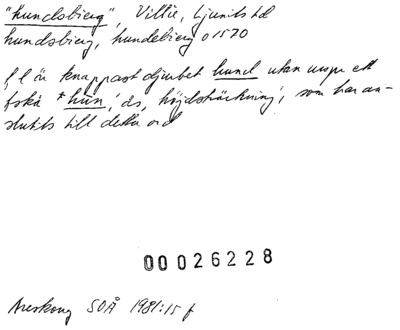 "Hundsbierg", Villie, Ljunits hd
hundsbierg, hundebierg o 1570
f l är knappast djurbet hund utan urspr ett
fskå *hūn, 'ås, höjdsträckning', som har an-
slutits till detta ord
00026228
Areskoug SOÅ 1981:15 f